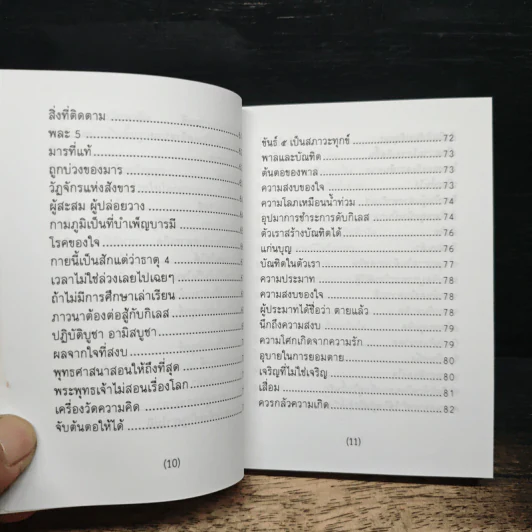 สิ่งที่ติดตาม
พละ 5
มารที่แท้
ถูกบ่วงของมาร
วัฏจักรแห่งสังขาร
ผู้สะสม ผู้ปล่อยวาง
กามภูมิเป็นที่บำเพ็ญบารมี
โรคของใจ
กายนี้เป็นสักแต่ว่าธาตุ 4
เวลาไม่ใช่ล่วงเลยไปเฉยๆ
ถ้าไม่มีการศึกษาเล่าเรียน
ภาวนาต้องต่อสู้กับกิเลส
ปฏิบัติบูชา อามิสบูชา
ผลจากใจที่สงบ
พุทธศาสนาสอนให้ถึงที่สุด
พระพุทธเจ้าไม่สอนเรื่องโลก
เครื่องวัดความคิด
จับต้นตอให้ได้
(10)
ขันธ์ ๕ เป็นสภาวะทุกข์ 72
พาลและบัณฑิต 73
ต้นตอของพาล 73
ความสงบของใจ 73
ความโลภเหมือนน้ำท่วม 74
อุปมาการชำระการดับกิเลส 74
ตัวเราสร้างบัณฑิตได้ 76
แก่นบุญ 76
บัณฑิตในตัวเรา 77
ความประมาท 77
ความสงบของใจ 78
ผู้ประมาทได้ชื่อว่า ตายแล้ว 78
นึกถึงความสงบ 78
ความโศกเกิดจากความรัก 79
อุบายในการยอมตาย 80
เจริญที่ไม่ใช่เจริญ 80
เสื่อม 81
ควรกลัวความเกิด 82
(11)